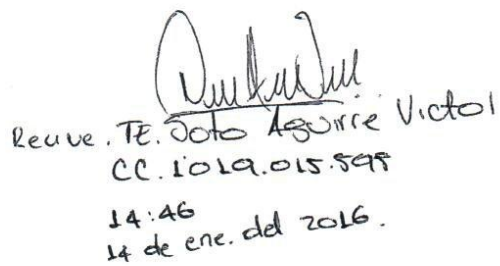 Recive. TE. Soto Aguirre Victor
CC. 1019.015.598
14:46
14 de ene. del 2016.